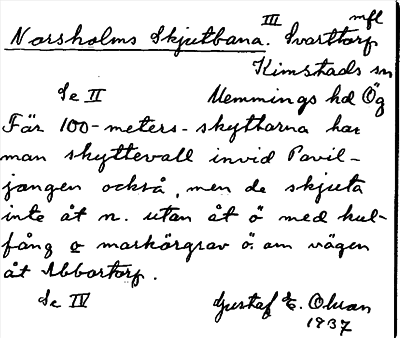 III mfl
Norsholms Skjutbana. Svarttorp
Kimstads sn
Se II Memmings hd Ög
Får 100-meters-skyttarna har
man skyttevall invid Pavil-
jongen också, men de skjuta
inte åt n. utan åt ö med kul-
fång o markörgrav ö. om vägen
åt Abbortorp.
Se IV Gustaf E. Olsson
1937